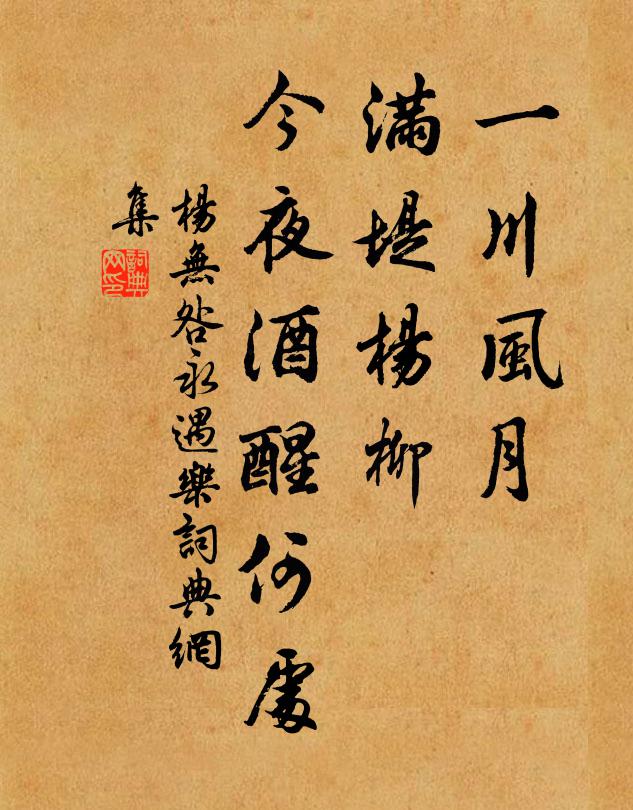 一川風月
滿堤楊柳
今夜酒醒何處
楊無咎永遇樂詞典網
集
詞典
网印